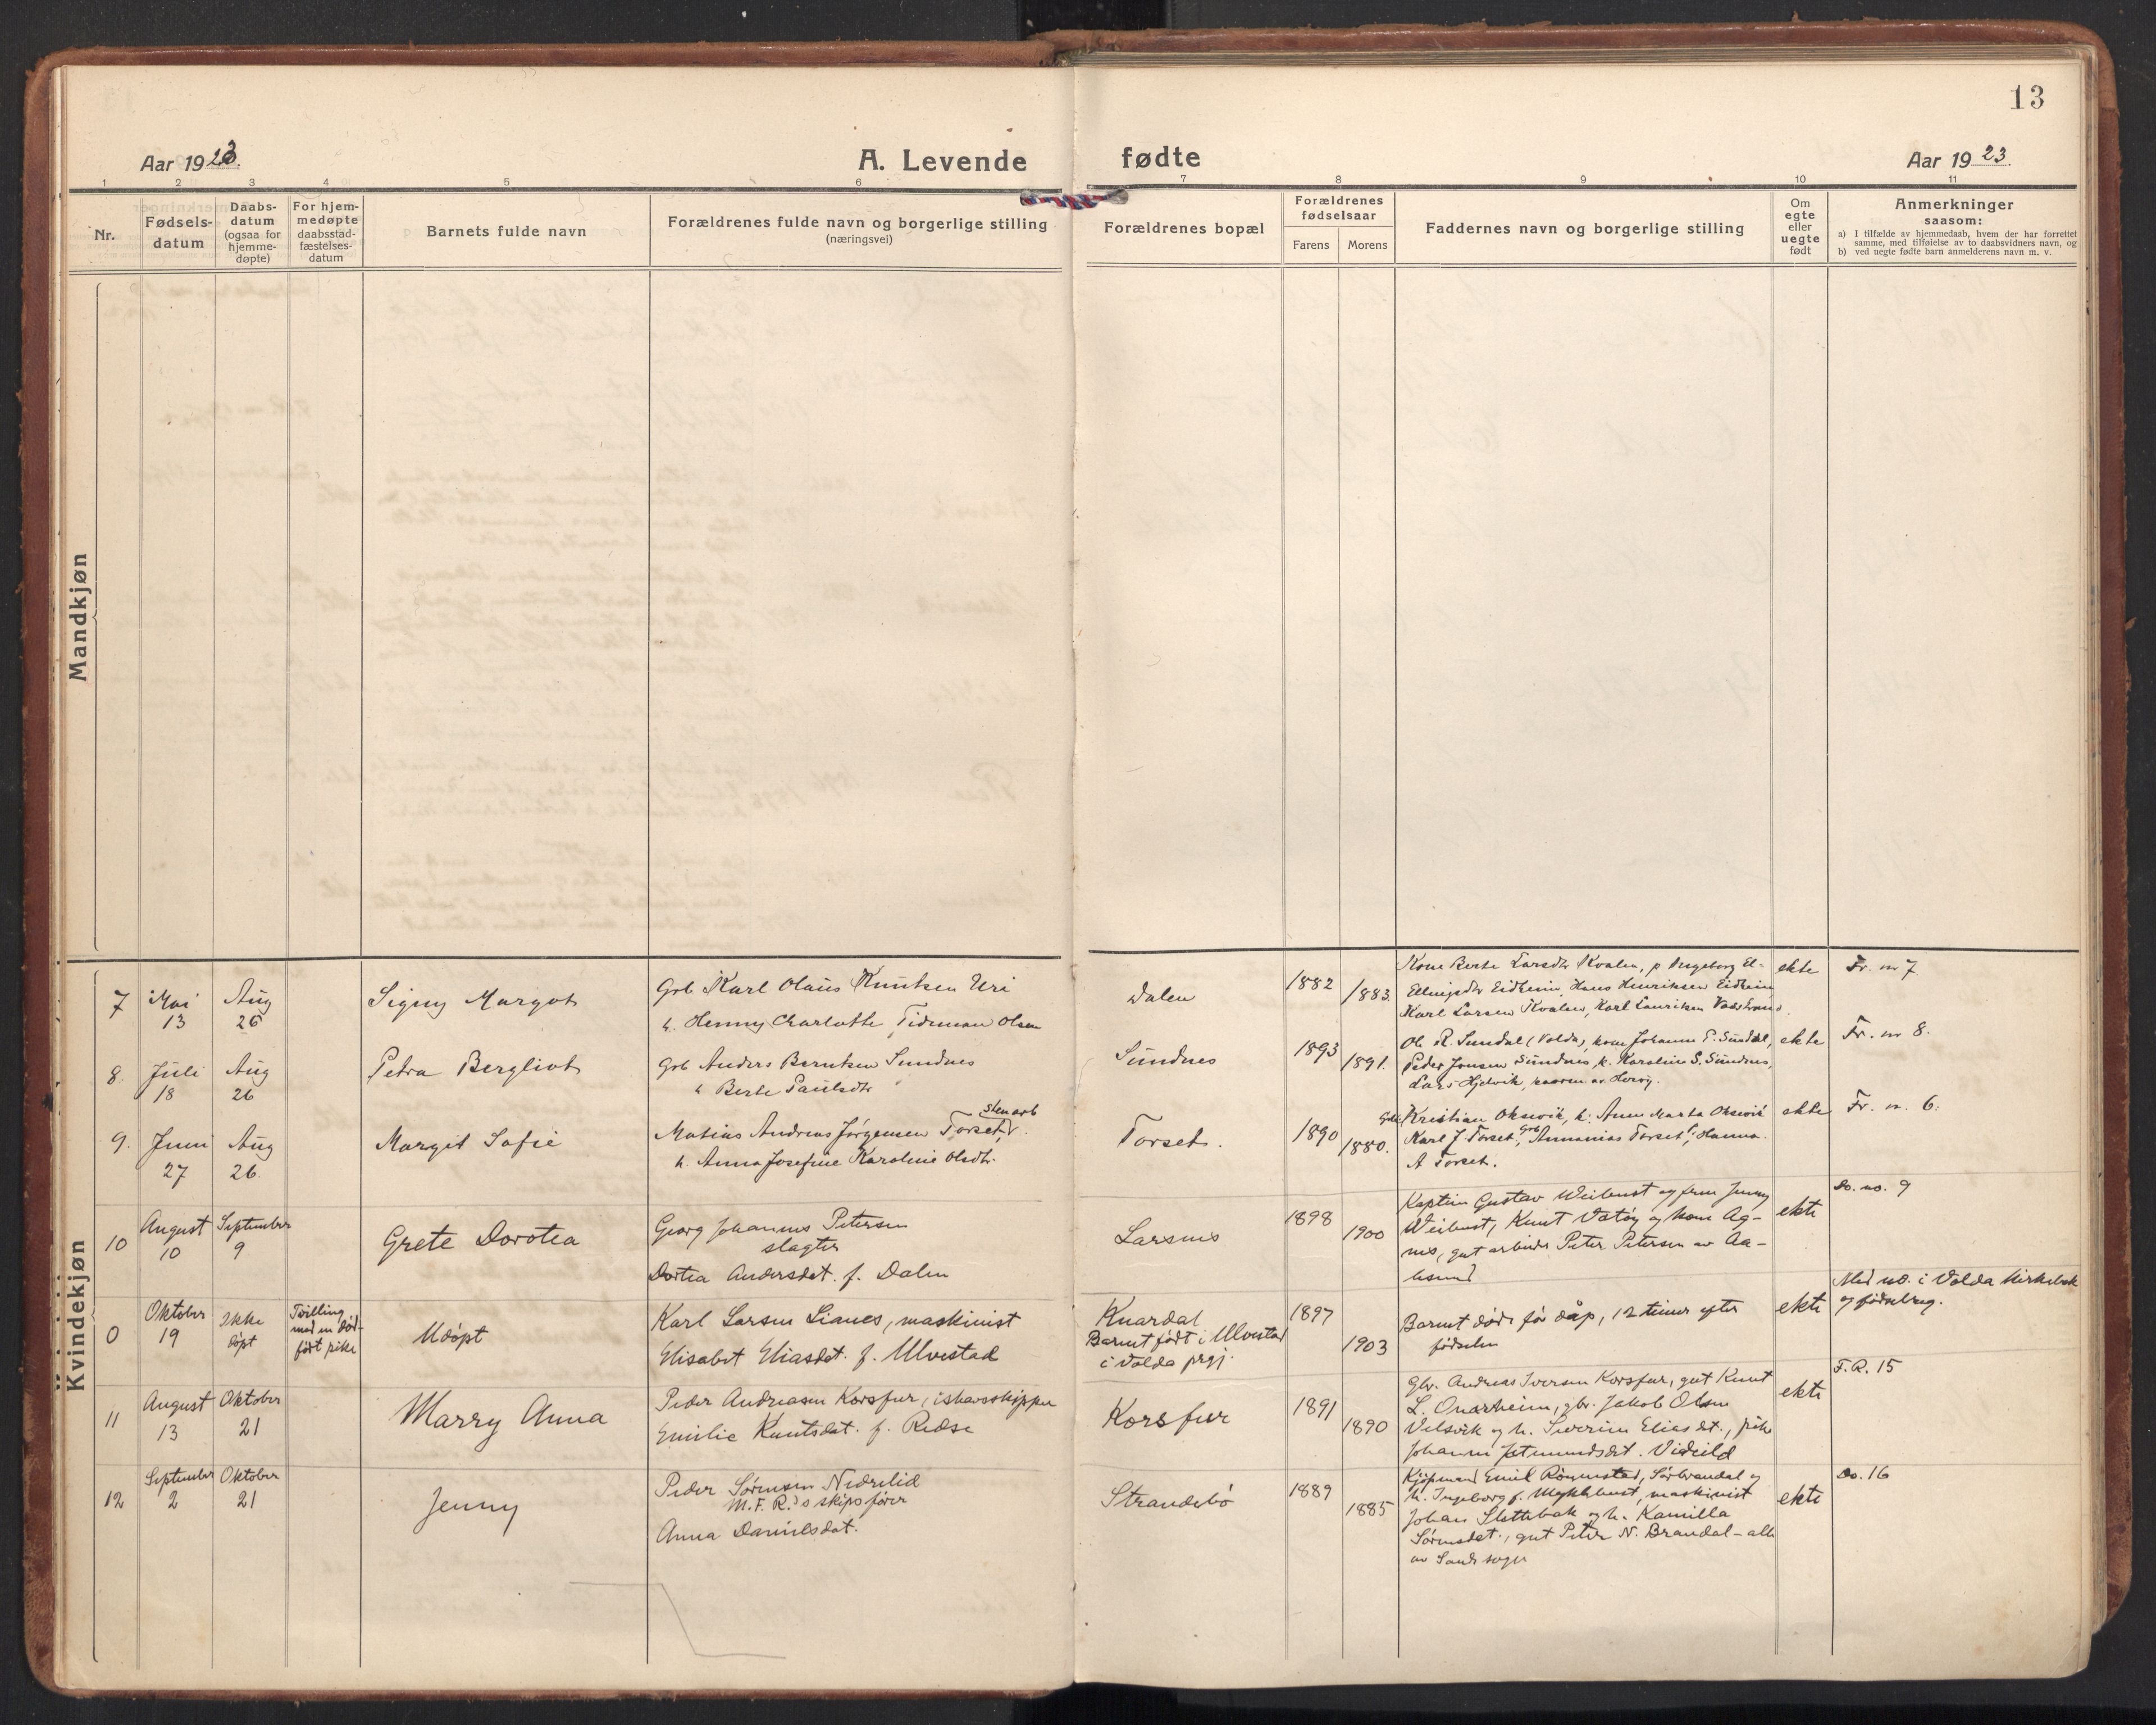 13
Aar 1923.
A. Levende fødte
Aar 1923.
1 2 3 4 5 6 7 8 9 10 11
Nr.
Fødsels-
datum
Daabs-
datum
(ogsaa for
hjemme-
døpte)
For hjem-
medøpte
daabsstad-
fæstelses-
datum
Barnets fulde navn
Forældrenes fulde navn og borgerlige stilling
(næringsvei)
Forældrenes bopæl
Forældrenes
fødselsaar
Farens Morens
Faddernes navn og borgerlige stilling
Om
egte
eller
uegte
født
Anmerkninger
saasom:
a) I tilfælde av hjemmedaab, hvem der har forrettet
samme, med tilføielse av to daabsvidners navn, og
b) ved uegte fødte barn anmelderens navn m. v.
Mandkjøn
Kvindekjøn
7
Mai
13
Aug
26
Signy Margot
Grb Karl Olaus Knutsen Uri
h. Henny Charlotte Tideman Olsen
Dalen
1882
1883.
Kone Berte Larsdtr Kvalen, p Ingeborg El-
Ellingsdtr Eidheim, Hans Henriksen Eidheim
Karl Larsen Kvalen, Karl Lauriksen
ekte
Fr. nr 7
8.
Juli
18
Aug
26
Petra Bergliot
Grb Anders Berntsen Sundnes
h Berte Paulsdtr
Sundnes
1893
1891.
Ole R. Sundal (Volda) kone Johanne E. Sundal,
Peder Jonsen Sundnes, k. Karoline S. Sundnes,
Lars Hjelvik, av Herøy.
ekte
Fr. nr 8.
9.
Juni
27
Aug
26.
Margit Sofie
Matias Andreas Jørgensen Torset, stenarb
h. Anna Josefine Karoline Olsdtr.
Torset.
1890
1880.
Grb Kristian Oksvik, k: Anne Marta Oksvik
Karl J. Torset, Grb Annanias Torset, Hanna
A Torset.
ekte
Fr. nr. 6.
10
August
10
September
9
Grete Dorotea
Georg Johannes Petersen
slagter
Dortea Andersdat. f. Dalen
Larsnes
1898
1900
Kaptein Gustav Weibust og frue Jenny
Weibust, Knut Vatøy og kone Ag-
nes, gut arbeider Peter Petersen av Aa-
lesund
ekte
Do. no. 9
0
Oktober
19
Ikke
døpt
Tvilling
med en død-
født pike
Udøpt
Karl Larsen Lianes, maskinist
Elisabet Eliasdat. f. Ulvestad
Knardal
Barnet født i Ulvestad
i Volda prgj.
1897
1903
Barnet døde før dåp, 12 timer efter
fødselen
ekte
Med no. i Volda kirkebok
og fødselreg.
11
August
13
Oktober
21
Marry Anna
Peder Andreasen Korsfur, ishavsskipper
Emilie Knutsdat. f. Redse
Korsfur
1891
1890
Gbr. Andreas Iversen Korsfur, gut Knut
L. Onarheim, gbr. Jakob Olsen
Velsvik og h. Severine Eliasdt., pike
Johanne Jetmundsdt. Videild
ekte
F.R. 15
12
September
2
Oktober
21
Jenny
Peder Sørensen Nedrelid
M.F.R.'s skipsfører
Anna Danielsdat.
Strandebø
1889
1885
Kjøpmand Emil Rønnestad, Sørbrandal og
h. Ingeborg f. Myklebust, maskinist
Johan Slettebak og h. Kamilla
Sørensdat., gut Peter N. Brandal – alle
av Sande sogn
ekte
Do. 16